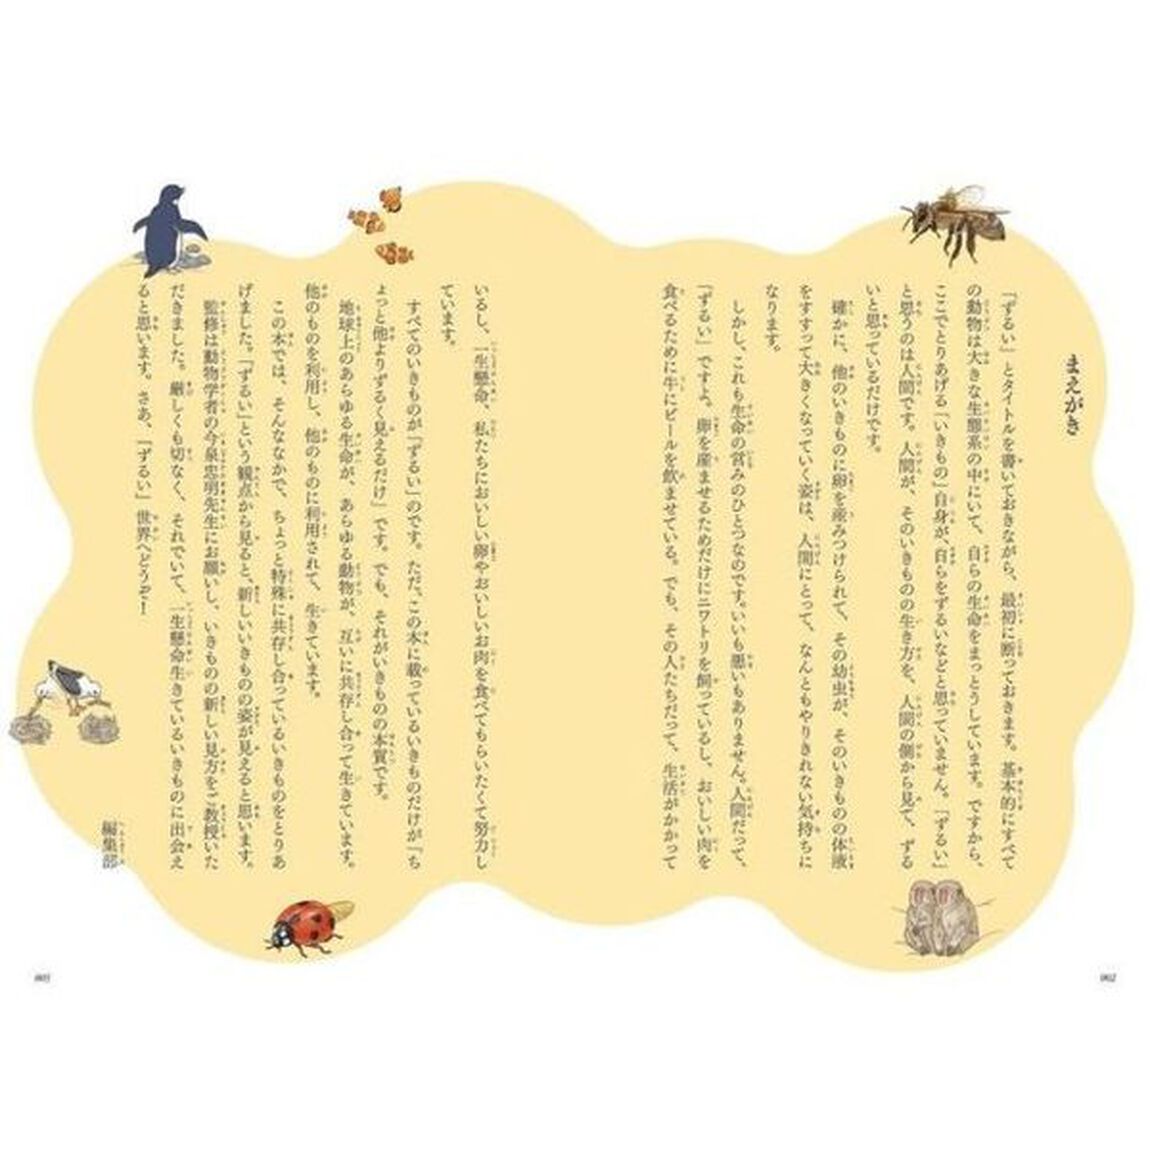 まえがき
「ずるい」とタイトルを書いておきながら、最初に断っておきます。基本的にすべて
の動物は大きな生態系の中にいて、自らの生命をまっとうしています。ですから、
ここでとりあげる「いきもの」自身が、自らをずるいなどと思っていません。「ずるい」
と思うのは人間です。人間が、そのいきものの生き方を、人間の側から見て、ずる
いと思っているだけです。
確かに、他のいきものに卵を産みつけられて、その幼虫が、そのいきものの体液
をすすって大きくなっていく姿は、人間にとって、なんともやりきれない気持ちに
なります。
しかし、これも生命の営みのひとつなのです。いいも悪いもありません。人間だって、
「ずるい」ですよ。卵を産ませるためだけにニワトリを飼っているし、おいしい肉を
食べるために牛にビールを飲ませている。でも、その人たちだって、生活がかかって
いるし、一生懸命、私たちにおいしい卵やおいしいお肉を食べてもらいたくて努力し
ています。
すべてのいきものが「ずるい」のです。ただ、この本に載っているいきものだけが「ち
ょっと他よりずるく見えるだけ」です。でも、それがいきものの本質です。
地球上のあらゆる生命が、あらゆる動物が、互いに共存し合って生きています。
他のものを利用し、他のものに利用されて、生きています。
この本では、そんななかで、ちょっと特殊に共存し合っているいきものをとりあ
げました。「ずるい」という観点から見ると、新しいいきものの姿が見えると思います。
監修は動物学者の今泉忠明先生にお願いし、いきものの新しい見方をご教授いた
だきました。厳しくも切なく、それでいて、一生懸命生きているいきものに出会え
ると思います。さあ、「ずるい」世界へどうぞ！
編集部
003
002